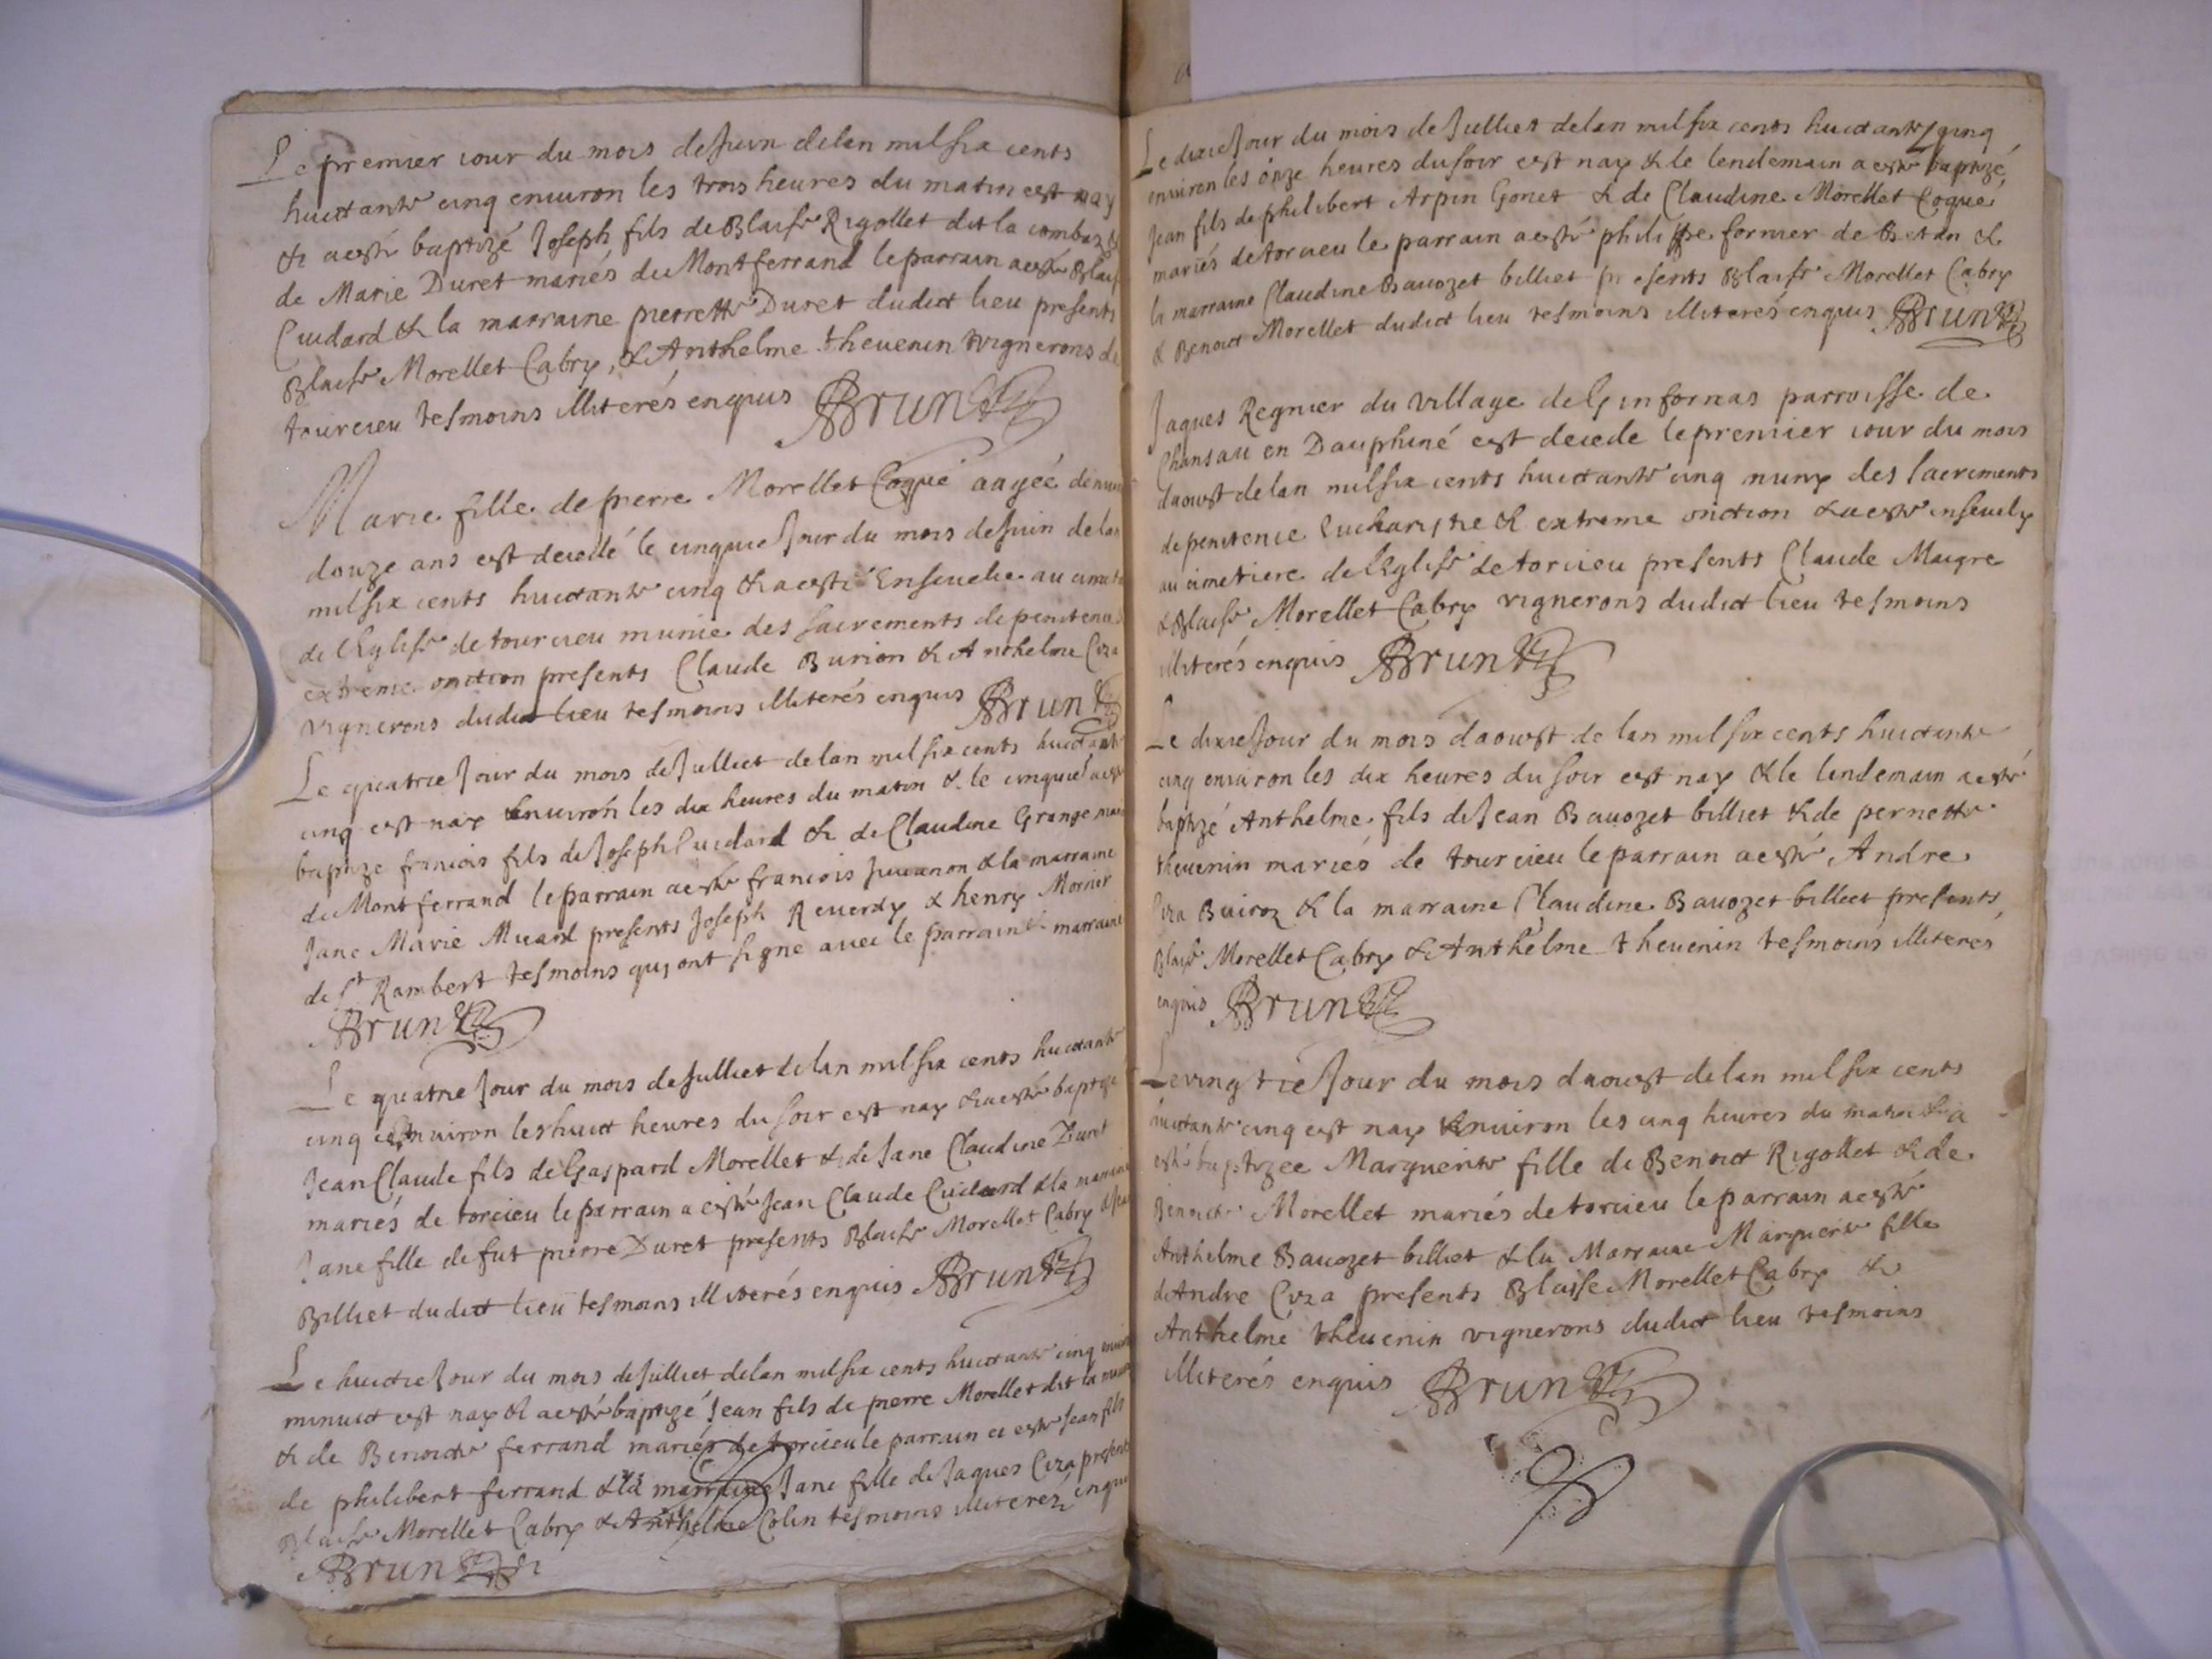 Le premier iour du mois de Juin de lan mil six cents
huictante cinq enuiron les trois heures du matin est nay
& a esté baptizé Joseph fils de Blaise Rigollet dit la combaz &
de Marie Duret mariés du Montferrand le parrain a esté Blaise
Cuidard & la marraine pierrette Duret dudict lieu presents
Blaise Morellet Cabry, & Anthelme theuenin vignerons de
tourcieu tesmoins illiterés enquis Brun
Marie fille de pierre Morellet Coque aagée denuiron
douze ans est decedé le cinquie Jour du mois de Juin de lan
mil six cents huictante cinq & a esté Enseuelie au cimet
de l'Eglise de tourcieu munie des sacrements de penitence &
extreme onction presents Claude Burion & Anthelme Ciza
vignerons dudict lieu tesmoins illiterés enquis Brun
Le quatrie Jour du mois de Julliet de lan mil six cents huictante
cinq est nay Enuiron les dix heures du matin & le cinquie a esté
baptize francois fils de Joseph Cuidard & de Claudine Grange mar
du Montferrand le parrain a esté francois Juuanon & la marraine
Jane Marie Muard presents Joseph Reuerdy & henry Mornier
de St Rambert tesmoins quj ont signe auec le parrain & marraine
Brun
Le quatrie Jour du mois de Julliet de lan mil six cents huictante
cinq Enuiron les huict heures du soir est nay & a esté baptize
Jean Claude fils de Gaspard Morellet & de Jane Claudine Duret
mariés de torcieu le parrain a esté Jean Claude Cuidard & la marraine
Jane fille de fut pierre Duret presents Blaise Morellet Cabry & Jean
Billiet dudict lieu tesmoins illiterés enquis Brun
Le huictie Jour du mois de Julliet de lan mil six cents huictante cinq enuiron
minuict est nay & a esté baptizé Jean fils de pierre Morellet dit la
& de Benoicte ferrand mariés de torcieu le parrain a esté Jean fils
de philibert ferrand & la marraine Jane fille de Jaques Ciza presents
Blaise Morellet Cabry & Anthelme Colin tesmoins illiterez enquis
Brun
Le dixie Jour du mois de Julliet de lan mil six cents huictante cinq
enuiron les onze heures du soir est nay & le lendemain a esté baptizé
Jean fils de philibert Arpin Gonet & de Claudine Morellet Coque
mariés de torcieu le parrain a esté philippe fornier de Betan &
la marraine Claudine Bauozet billiet presents Blaise Morellet Cabry
& Benoict Morellet dudict lieu tesmoins illiterés enquis Brun
Jaques Regnier du village de parroisse de
Chansau en Dauphiné est decede le premier iour du mois
daoust de lan mil six cents huictante cinq muny des sacrements
de penitence Eucharistie & extreme onction & a esté enseuely
au cimetiere de l'Eglise de torcieu presents Claude Maigre
& Blaise Morellet Cabry vignerons dudict lieu tesmoins
illiterés enquis Brun
Le dixie Jour du mois daoust de lan mil six cents huictante
cinq enuiron les dix heures du soir est nay & le lendemain a esté
baptizé Anthelme fils de Jean Bauozet billiet & de pernette
theuenin mariés de tourcieu le parrain a esté Andre
Ciza Buiroz & la marraine Claudine Bauozet billiet presents
Blaise Morellet Cabry & Anthelme theuenin tesmoins illiteres
enquis Brun
Le vingtie Jour du mois daoust de lan mil six cents
huictante cinq est nay Enuiron les cinq heures du matin & a
esté baptizee Marguerite fille de Benoict Rigollet & de
Benoicte Morellet mariés de torcieu le parrain a esté
Anthelme Bauozet billiet & la Marraine Marguerite fille
de Andre Ciza presents Blaise Morellet Cabry &
Anthelme theuenin vignerons dudict lieu tesmoins
illiterés enquis Brun